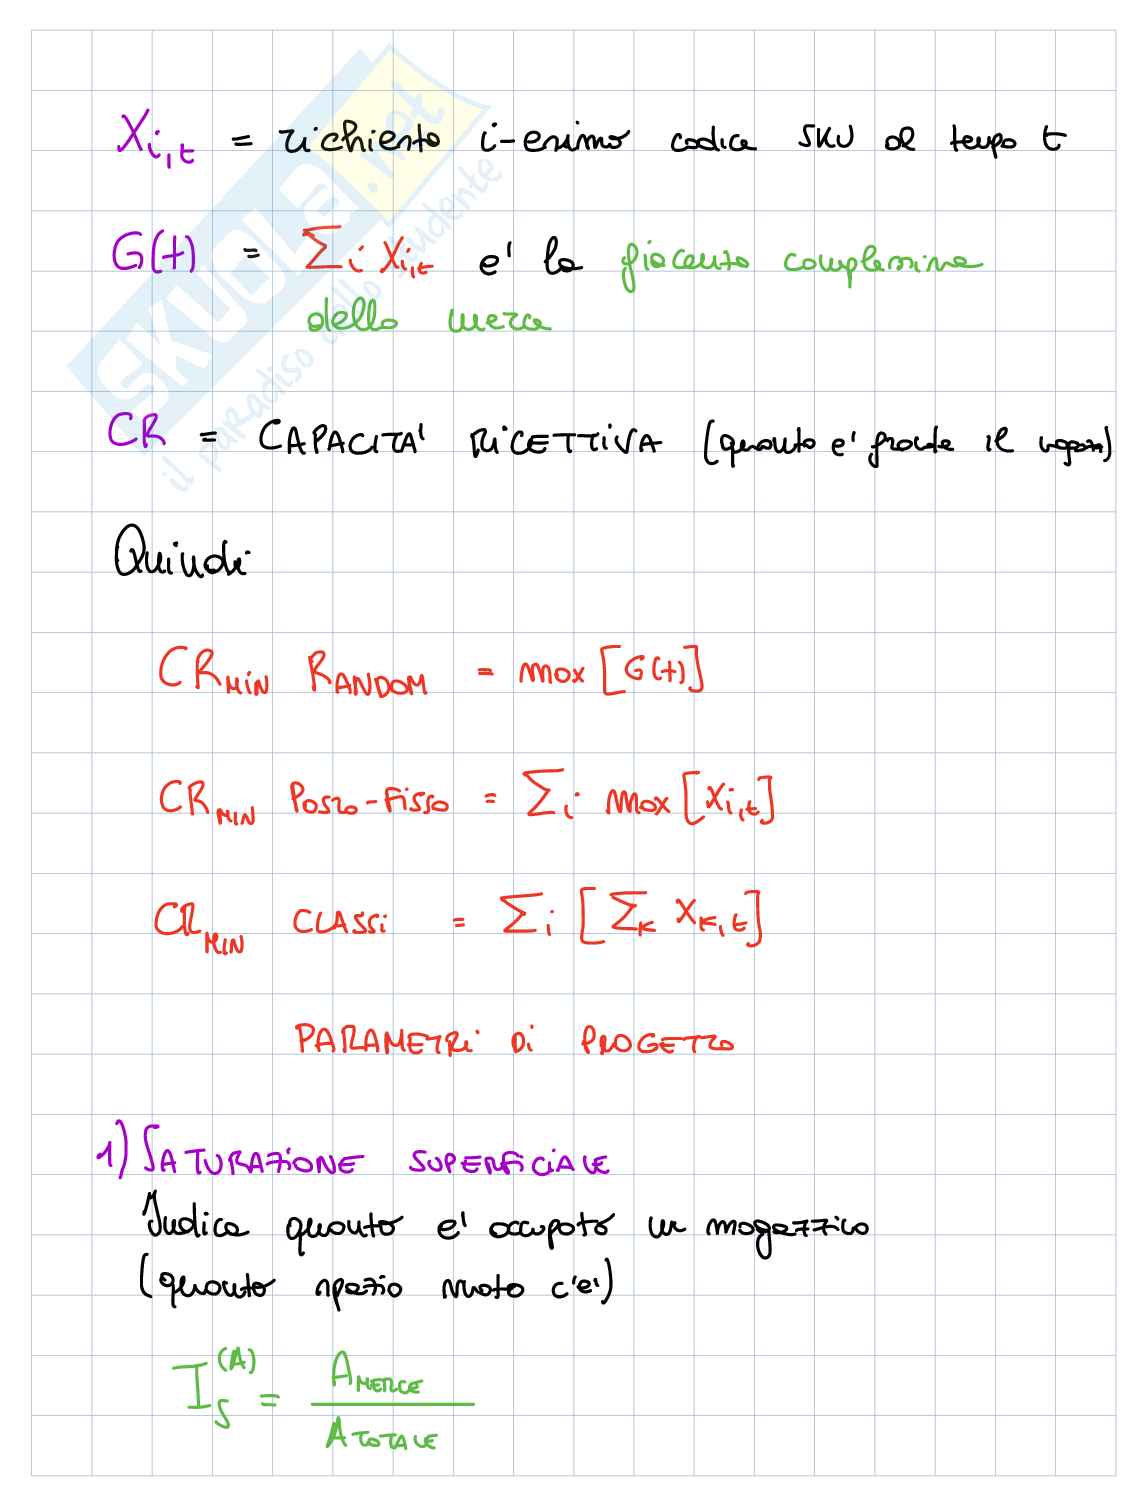 X_{i,t} = richiesta i-esimo codice SKU al tempo t
G(t) = Σ_i X_{i,t} e' la giacenza complessiva
della merce
CR = CAPACITA' RICETTIVA (quanto e' grande il magazz)
Quindi
CR_{MIN} RANDOM = max [G(t)]
CR_{MIN} POSTO-FISSO = Σ_i max [X_{i,t}]
CR_{MIN} CLASSI = Σ_i [Σ_K X_{K,t}]
PARAMETRI DI PROGETTO
1) SATURAZIONE SUPERFICIALE
Indica quanto e' occupato un magazzino
(quanto spazio vuoto c'e')
I_S^{(A)} = A_{MERCE} / A_{TOTALE}
SKUOLA.net
il paradiso dello studente